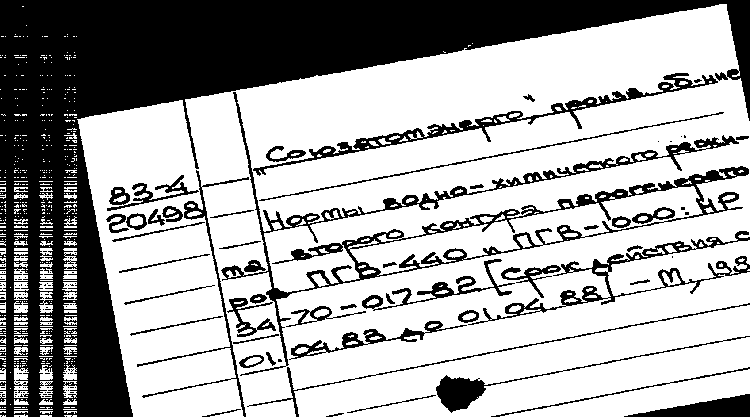 "Союзатомэнерго", произв. об-ние
83-4
20498
Нормы водно-химического режи-
ма второго контура парогенерато
ров ПГВ-440 и ПГВ-1000: НР
34-70-017-82 [срок действия с
01.04.83 до 01.04.88] - М., 198